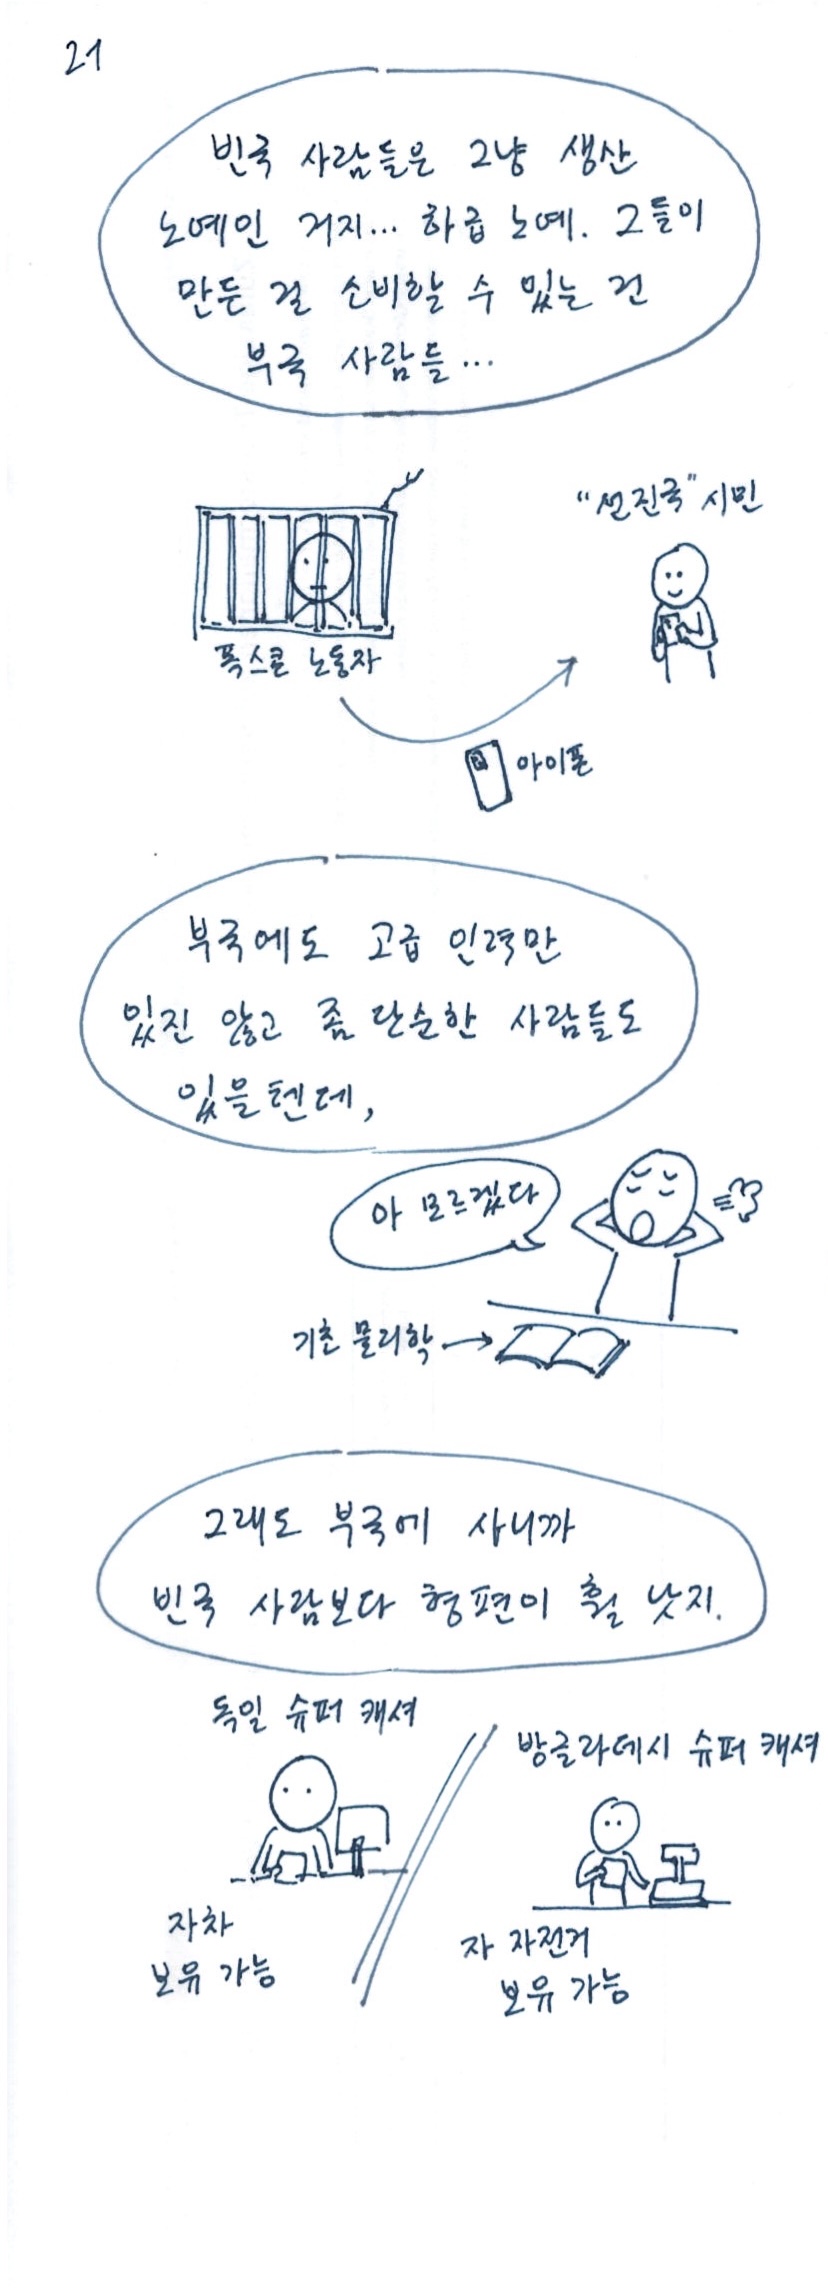 21
빈국 사람들은 그냥 생산
노예인 거지... 하급 노예. 그들이
만든 걸 소비할 수 있는 건
부국 사람들...
"선진국" 시민
폭스콘 노동자
아이폰
부국에도 고급 인력만
있진 않고 좀 단순한 사람들도
있을텐데,
아 모르겠다
기초 물리학
그래도 부국에 사니까
빈국 사람보다 형편이 훨 낫지.
독일 슈퍼 캐셔
방글라데시 슈퍼 캐셔
자차
보유 가능
자 자전거
보유 가능